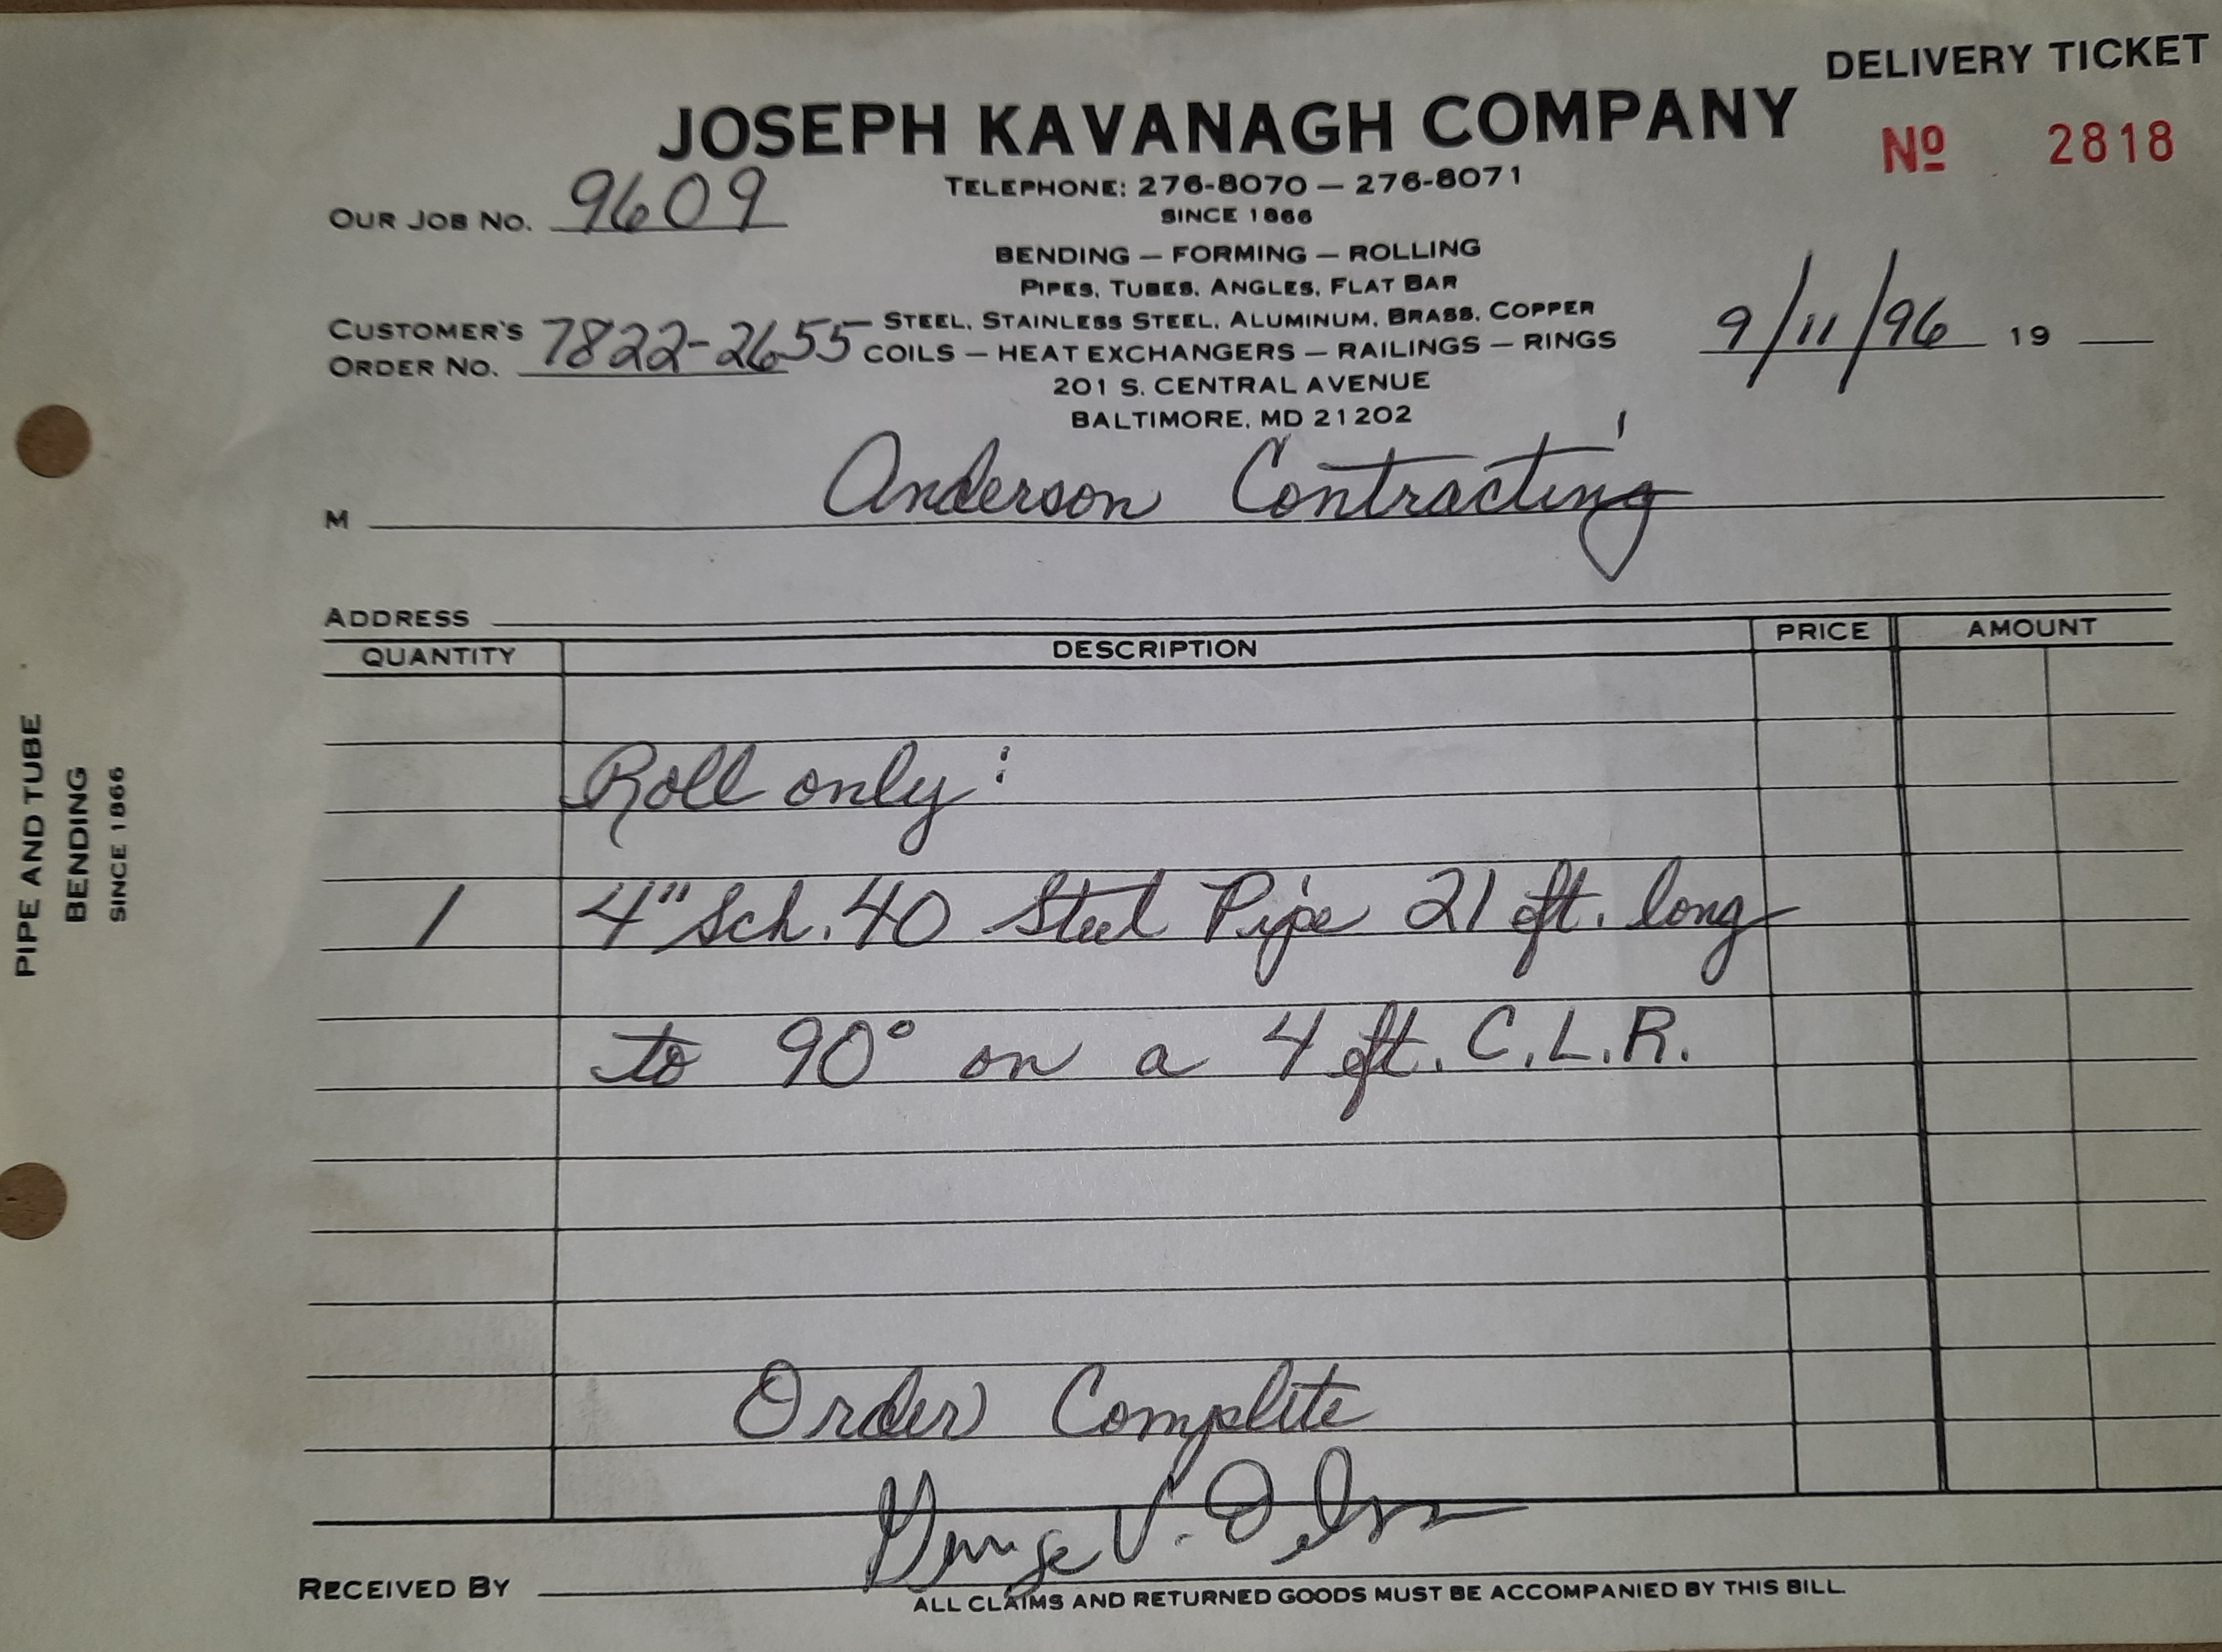 DELIVERY TICKET
JOSEPH KAVANAGH COMPANY
Nº 2818
TELEPHONE: 276-8070 — 276-8071
SINCE 1866
OUR JOB NO. 9609
BENDING — FORMING — ROLLING
PIPES, TUBES, ANGLES, FLAT BAR
STEEL, STAINLESS STEEL, ALUMINUM, BRASS, COPPER
COILS — HEAT EXCHANGERS — RAILINGS — RINGS
201 S. CENTRAL AVENUE
BALTIMORE, MD 21202
CUSTOMER'S
ORDER NO. 7822-2655
9/11/96 19
M Anderson Contracting
ADDRESS
QUANTITY DESCRIPTION PRICE AMOUNT
Roll only:
1 4" Sch. 40 Steel Pipe 21 ft. long
to 90° on a 4 ft. C.L.R.
Order Complete
RECEIVED BY George V.
ALL CLAIMS AND RETURNED GOODS MUST BE ACCOMPANIED BY THIS BILL.
PIPE AND TUBE
BENDING
SINCE 1866